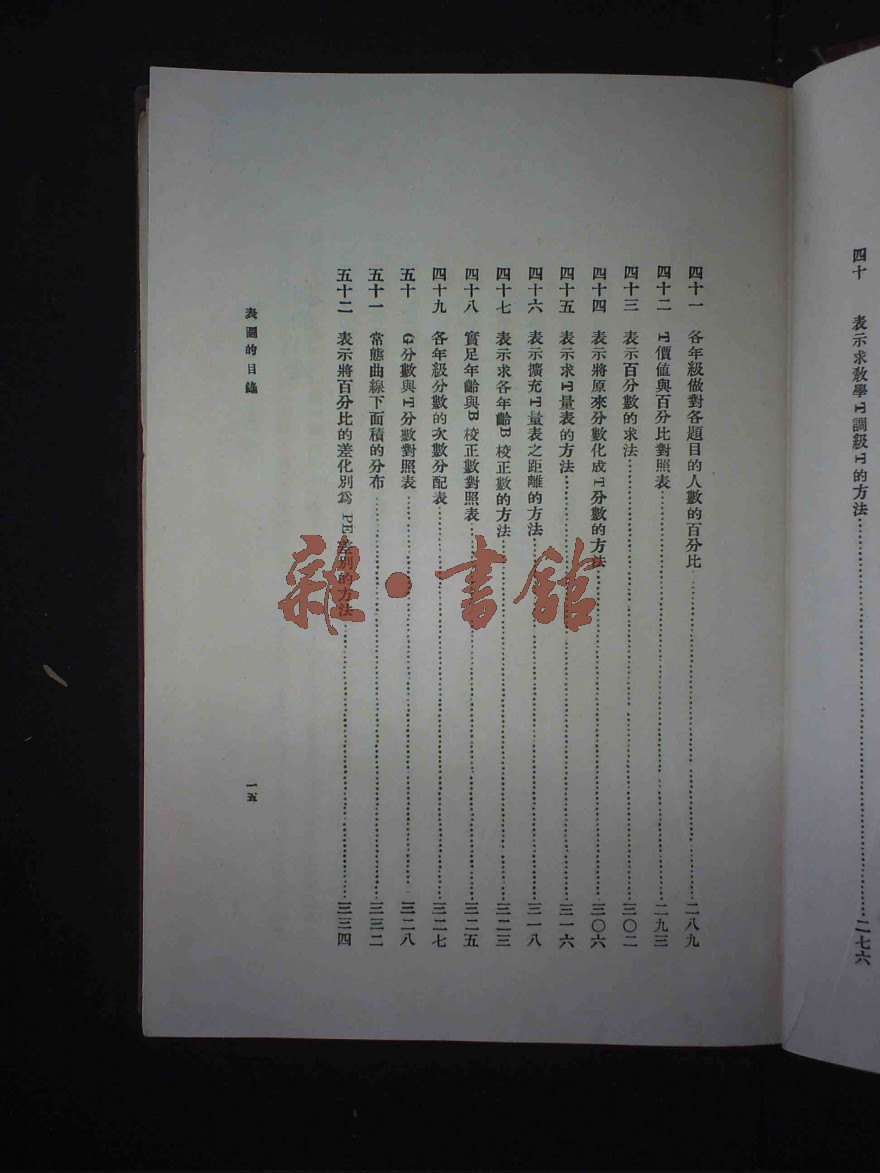 四十 表示求教學T調級T的方法……二七六
四十一 各年級做對各題目的人數的百分比……二八九
四十二 T價值與百分比對照表……二九三
四十三 表示百分數的求法……三〇二
四十四 表示將原來分數化成T分數的方法……三〇六
四十五 表示求T量表的方法……三一六
四十六 表示擴充T量表之距離的方法……三一八
四十七 表示求各年齡B校正數的方法……三二三
四十八 實足年齡與B校正數對照表……三二五
四十九 各年級分數的次數分配表……三二七
五十 G分數與T分數對照表……三二八
五十一 常態曲線下面積的分布……三三二
五十二 表示將百分比的差化別爲PE差別的方法……三三四
表圖的目錄
一五
雜·書館